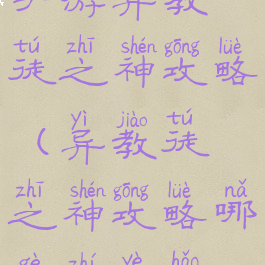 游异教
tú zhī shén gōng lüè
徒之神攻略
yì jiào tú
（异教徒
zhī shén gōng lüè nǎ
之神攻略哪
gè zhí yè hǎo